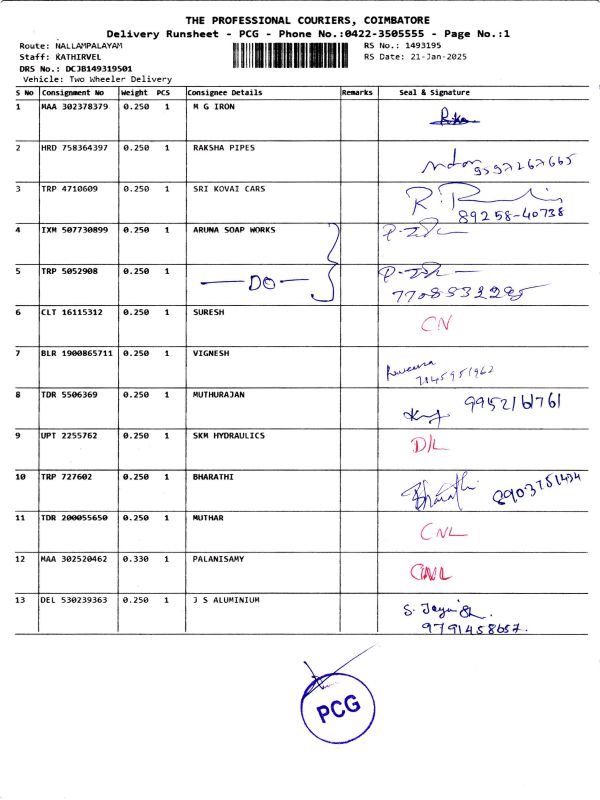 THE PROFESSIONAL COURIERS, COIMBATORE
Delivery Runsheet - PCG - Phone No.:0422-3505555 - Page No.:1
Route: NALLAMPALAYAM RS No.: 1493195
Staff: KATHIRVEL RS Date: 21-Jan-2025
DRS No.: DCJB149319501
Vehicle: Two Wheeler Delivery
S No Consignment No Weight PCS Consignee Details Remarks Seal & Signature
1 MAA 302378379 0.250 1 M G IRON
2 HRD 758364397 0.250 1 RAKSHA PIPES
3 TRP 4710609 0.250 1 SRI KOVAI CARS
89258-40738
4 IXM 507730899 0.250 1 ARUNA SOAP WORKS
5 TRP 5052908 0.250 1 DO
6 CLT 16115312 0.250 1 SURESH CN
7 BLR 1900865711 0.250 1 VIGNESH
8 TDR 5506369 0.250 1 MUTHURAJAN 9952161761
9 UPT 2255762 0.250 1 SKM HYDRAULICS D/L
10 TRP 727602 0.250 1 BHARATHI Bharathi 8903751434
11 TDR 200055650 0.250 1 MUTHAR CNL
12 MAA 302520462 0.330 1 PALANISAMY CNL
13 DEL 530239363 0.250 1 J S ALUMINIUM
9791458657.
PCG